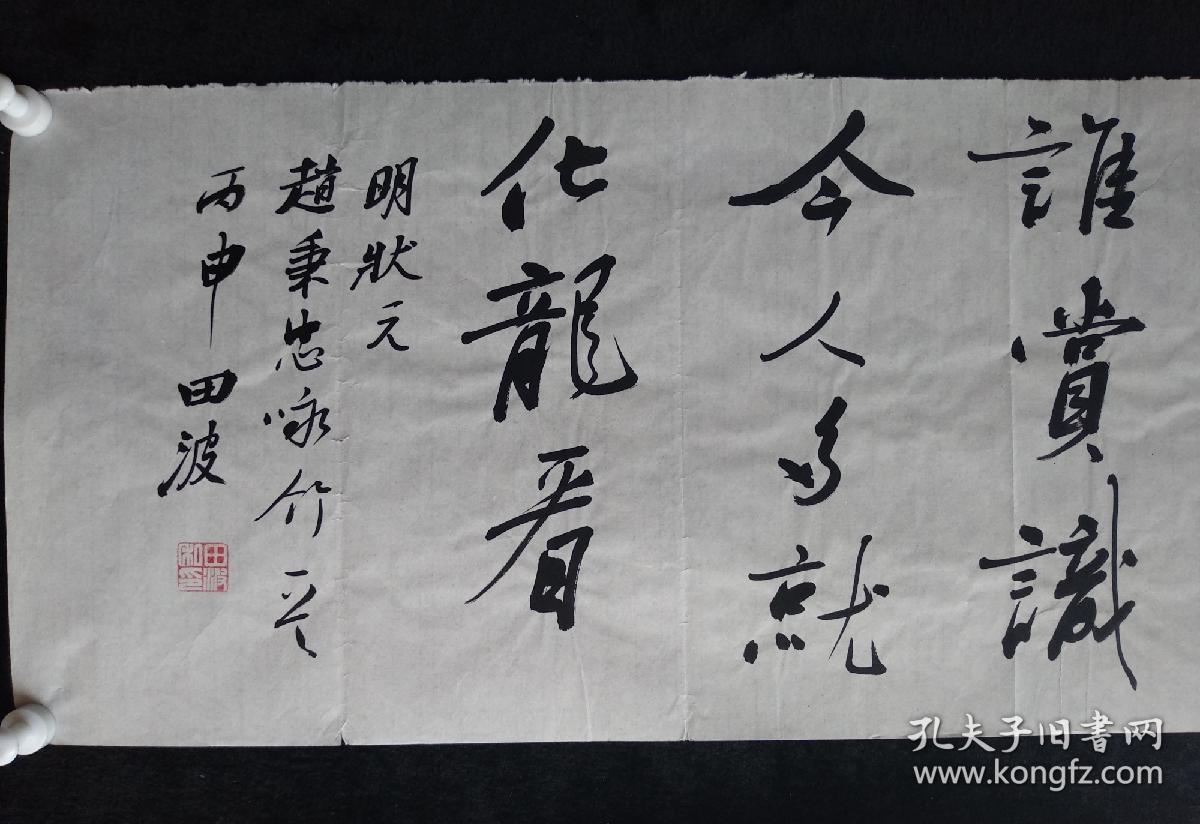 誰賞識
今人多就
化龍看
明狀元
趙秉忠咏竹
丙申
田波
田波私印
孔夫子旧书网
www.kongfz.com